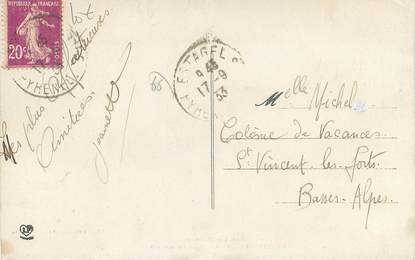 REPUBLIQUE FRANÇAISE
20c
POSTES
Les plus
Amitiées.
Jeannette
ESTAGEL
9 45
17-9
33
Melle Michel
Colonie de Vacances
St Vincent-les-Forts
Basses-Alpes.